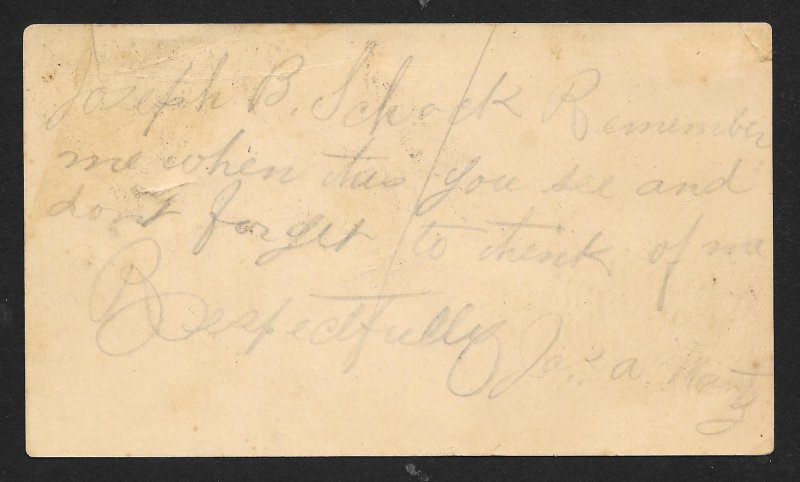 Joseph B. Schock Remember
me when this you see and
dont forget to think of me
Respectfully Jas. A. Mantz